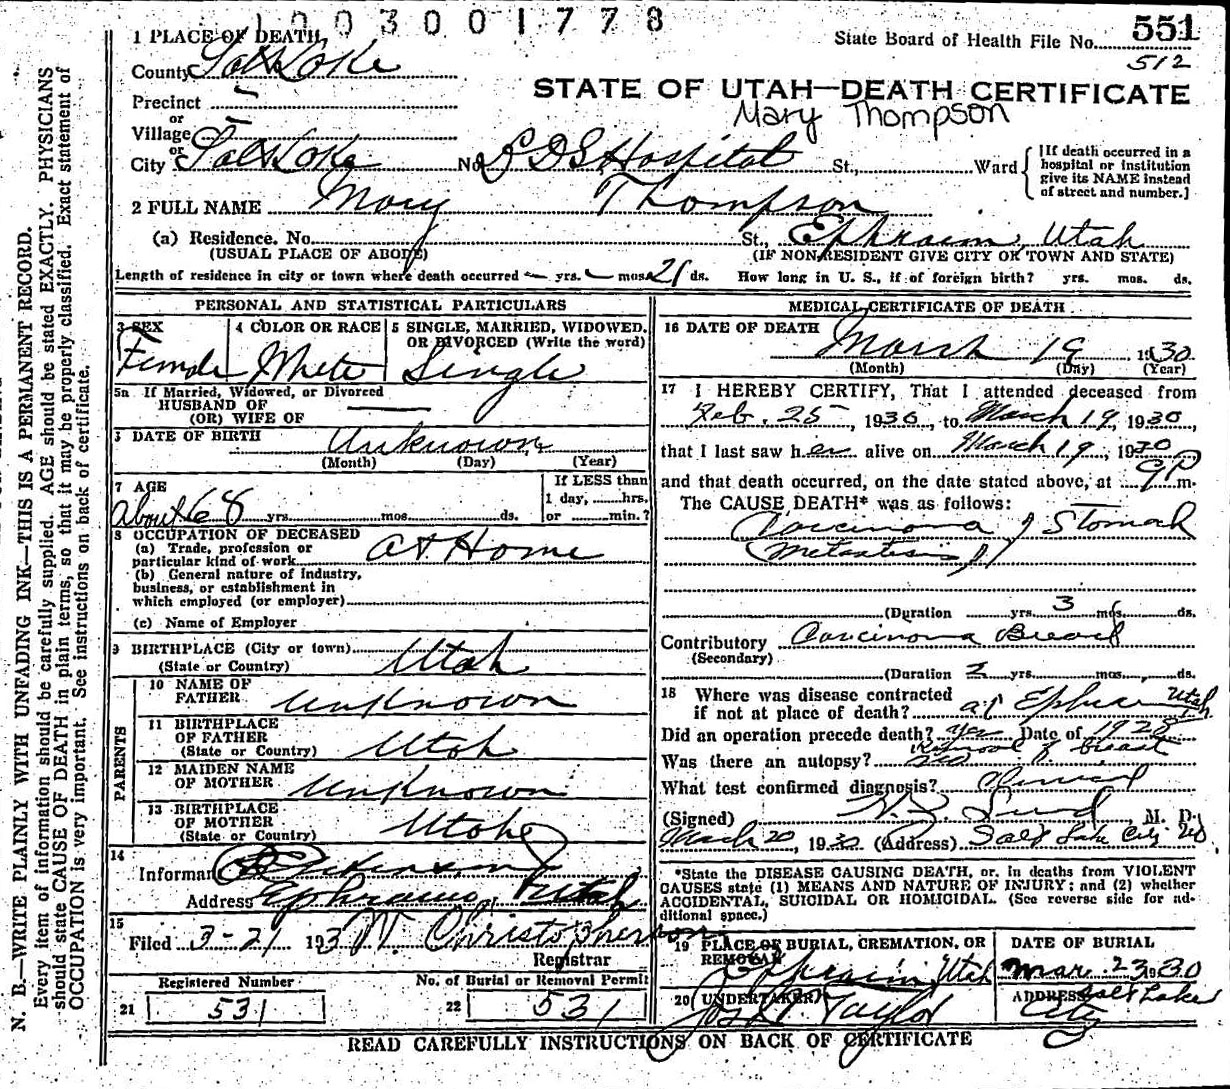 1003001778
1 PLACE OF DEATH
State Board of Health File No. 551
512
County Salt Lake
STATE OF UTAH—DEATH CERTIFICATE
Precinct —
Mary Thompson
or
Village —
or
City Salt Lake No. L D S Hospital St., Ward
[If death occurred in a
hospital or institution
give its NAME instead
of street and number.]
2 FULL NAME Mary Thompson
(a) Residence. No. St., Ephraim, Utah
(USUAL PLACE OF ABODE) (IF NON-RESIDENT GIVE CITY OR TOWN AND STATE)
Length of residence in city or town where death occurred — yrs. — mos. 21 ds. How long in U. S., if of foreign birth? yrs. mos. ds.
PERSONAL AND STATISTICAL PARTICULARS
3 SEX
Female
4 COLOR OR RACE
White
5 SINGLE, MARRIED, WIDOWED,
OR DIVORCED (Write the word)
Single
5a If Married, Widowed, or Divorced
HUSBAND OF
(OR) WIFE OF —
6 DATE OF BIRTH Unknown
(Month) (Day) (Year)
7 AGE
About 68 yrs. mos. ds.
If LESS than
1 day, hrs.
or min.?
8 OCCUPATION OF DECEASED
(a) Trade, profession or
particular kind of work At Home
(b) General nature of industry,
business, or establishment in
which employed (or employer)
(c) Name of Employer
9 BIRTHPLACE (City or town)
(State or Country) Utah
PARENTS
10 NAME OF
FATHER Unknown
11 BIRTHPLACE
OF FATHER
(State or Country) Utah
12 MAIDEN NAME
OF MOTHER Unknown
13 BIRTHPLACE
OF MOTHER
(State or Country) Utah
14
Informant
Address Ephraim Utah
15
Filed 3-21 193 W. Christopherson
Registrar
Registered Number
21 531
No. of Burial or Removal Permit
22 531
MEDICAL CERTIFICATE OF DEATH
16 DATE OF DEATH
March 19 1930
(Month) (Day) (Year)
17 I HEREBY CERTIFY, That I attended deceased from
Feb. 25, 1930, to March 19, 1930,
that I last saw her alive on March 19, 1930
and that death occurred, on the date stated above, at 9 P m.
The CAUSE DEATH* was as follows:
Carcinoma of Stomach
Metastasis
(Duration yrs. 3 mos. ds.
Contributory Carcinoma Breast
(Secondary)
(Duration 2 yrs. mos. ds.
18 Where was disease contracted
if not at place of death? at Ephraim Utah
Did an operation precede death? Yes Date of 1928
Removal of breast
Was there an autopsy? No
What test confirmed diagnosis? Clinical
(Signed) , M. D.
March 20, 1930 (Address) Salt Lake City
*State the DISEASE CAUSING DEATH, or, in deaths from VIOLENT
CAUSES state (1) MEANS AND NATURE OF INJURY; and (2) whether
ACCIDENTAL, SUICIDAL OR HOMICIDAL. (See reverse side for ad-
ditional space.)
19 PLACE OF BURIAL, CREMATION, OR
REMOVAL
Ephraim, Utah
DATE OF BURIAL
Mar. 23 1930
20 UNDERTAKER
Taylor
ADDRESS Salt Lake
City
READ CAREFULLY INSTRUCTIONS ON BACK OF CERTIFICATE
N. B.—WRITE PLAINLY WITH UNFADING INK—THIS IS A PERMANENT RECORD.
Every item of information should be carefully supplied. AGE should be stated EXACTLY. PHYSICIANS
should state CAUSE OF DEATH in plain terms, so that it may be properly classified. Exact statement of
OCCUPATION is very important. See instructions on back of certificate.